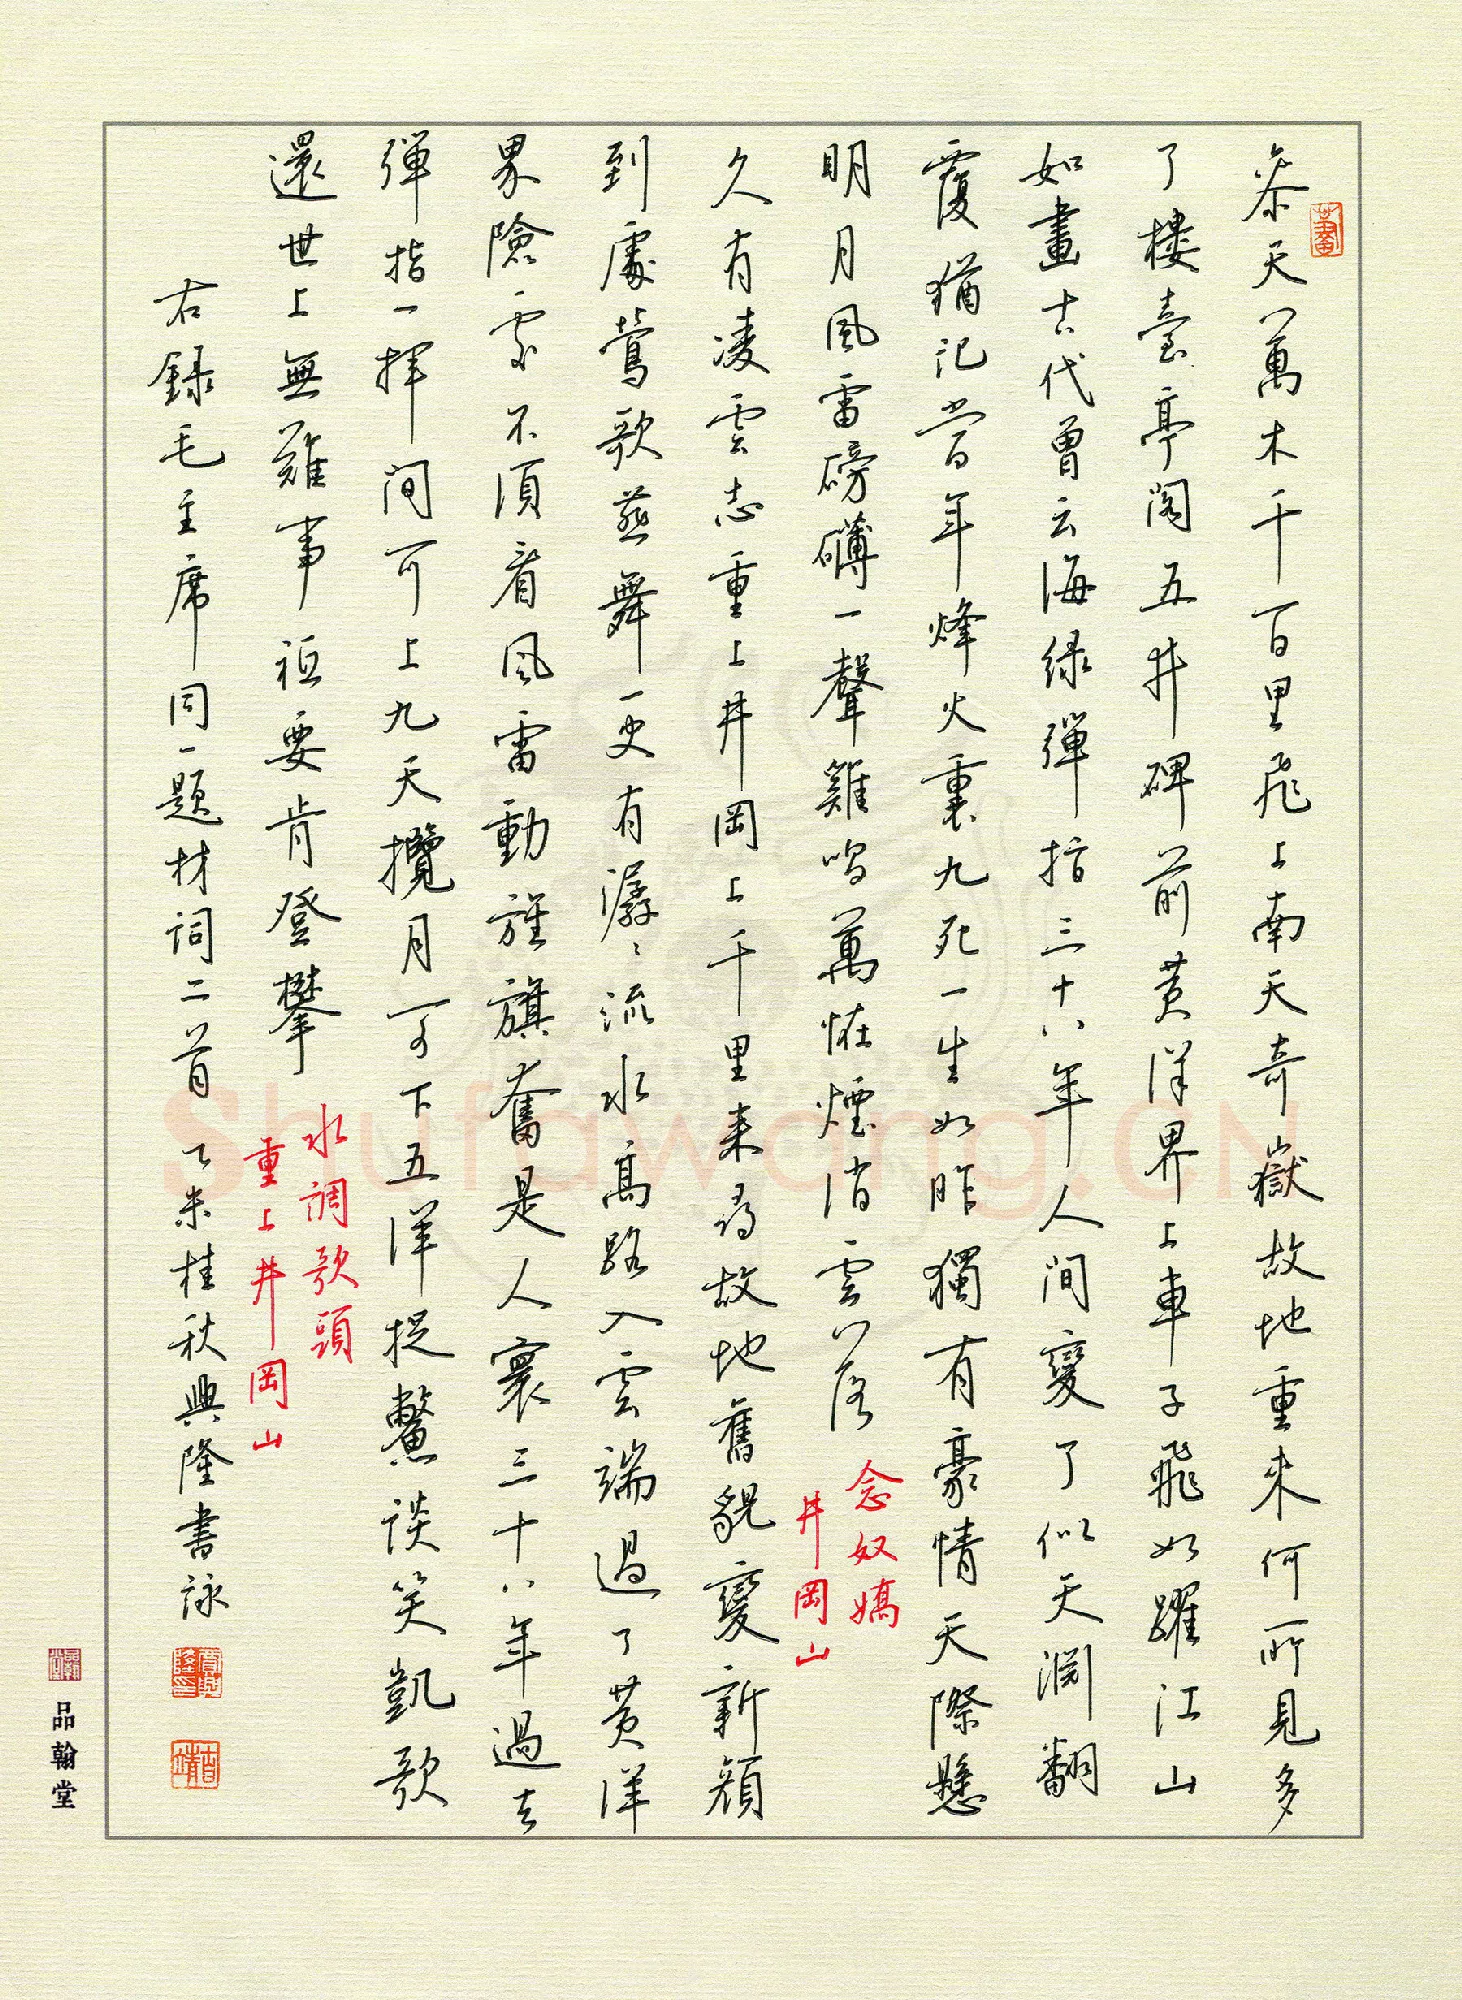 參天萬木千百里飛上南天奇嶽故地重來何所見多
了樓臺亭閣五井碑前黄洋界上車子飛如躍江山
如畫古代曾云海绿彈指三十八年人間變了似天渊翻
覆猶记當年烽火裏九死一生如昨獨有豪情天際懸
明月風雷磅礴一聲雞鳴萬怪煙消雲落
念奴嬌
井岡山
久有凌雲志重上井岡山千里來尋故地舊貌變新顏
到處鶯歌燕舞更有潺潺流水高路入雲端過了黄洋
界險處不須看風雷動旌旗奮是人寰三十八年過去
彈指一揮間可上九天攬月可下五洋捉鱉談笑凱歌
還世上無難事衹要肯登攀
水調歌頭
重上井岡山
右録毛主席同一題材词二首乙未桂秋興隆書詠
品翰堂
Shufawang.CN